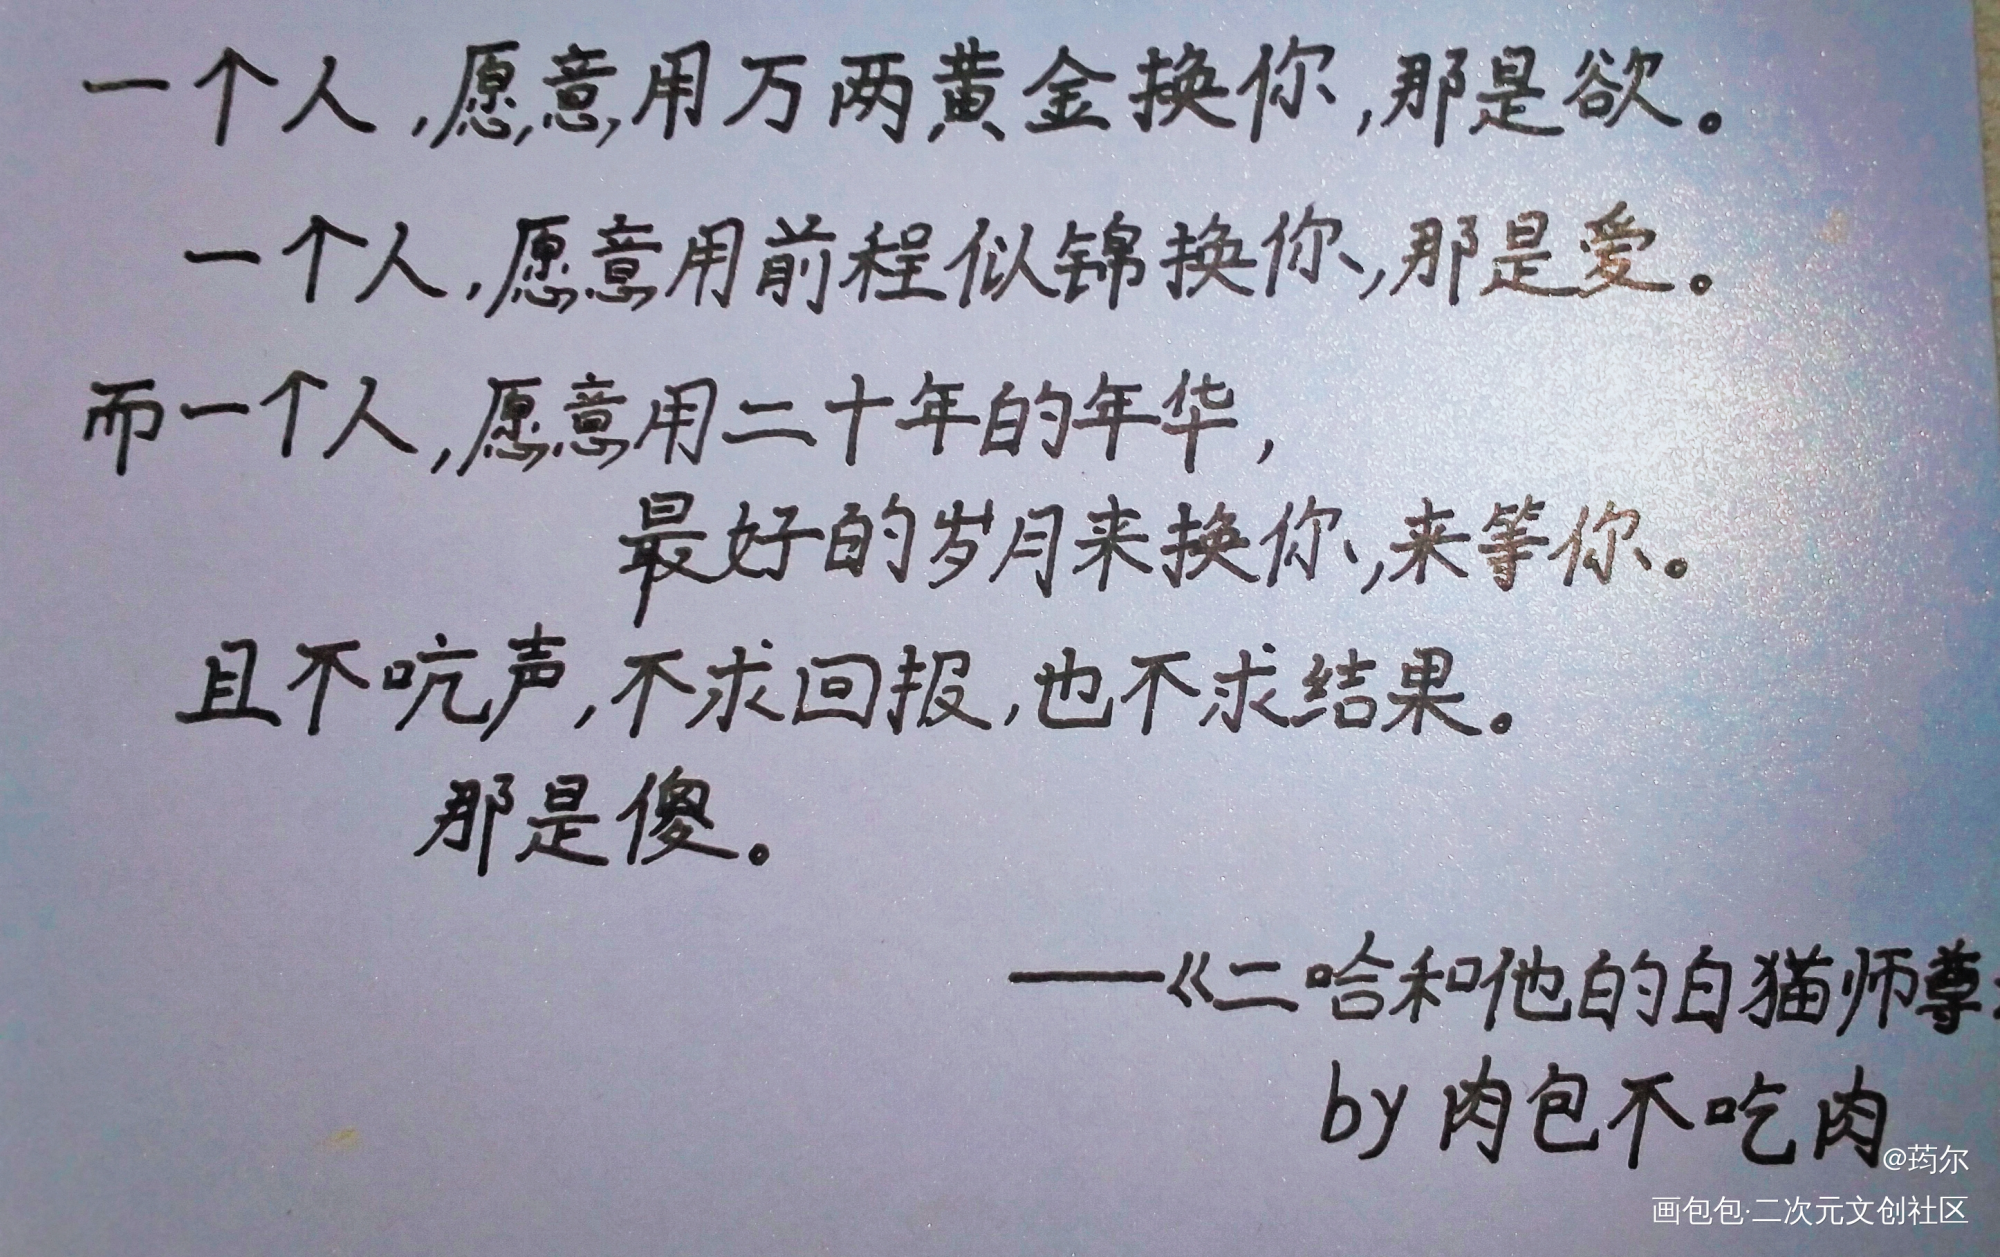 一个人,愿意用万两黄金换你,那是欲。
一个人,愿意用前程似锦换你,那是爱。
而一个人,愿意用二十年的年华,
最好的岁月来换你,来等你。
且不吭声,不求回报,也不求结果。
那是傻。
——《二哈和他的白猫师尊》
by 肉包不吃肉
@荺尔
画包包·二次元文创社区